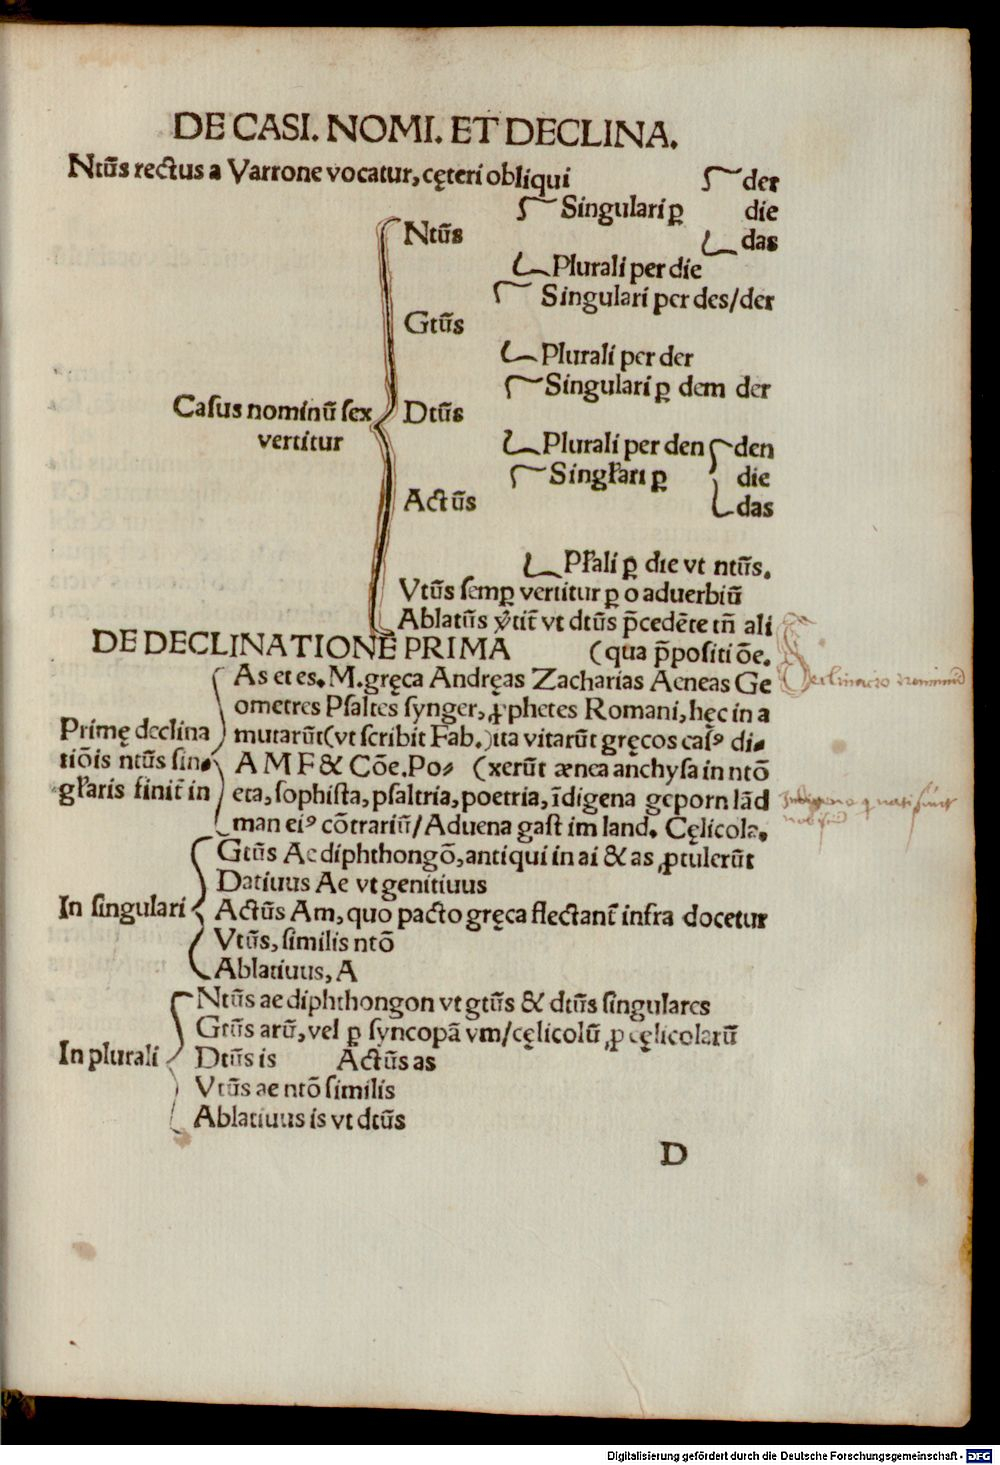 DE CASI. NOMI. ET DECLINA.
Ntūs rectus a Varrone vocatur, cęteri obliqui
der
Singulari ꝑ die
Ntūs
das
Plurali per die
Singulari per des/der
Gtūs
Plurali per der
Singulari ꝑ dem der
Casus nominū sex
vertitur
Dtūs
Plurali per den
den
Singłari ꝑ die
Actūs
das
Płali ꝑ die vt ntūs.
Vtūs semꝑ vertitur ꝑ o aduerbiū
Ablatūs v̓tit̄ vt dtūs p̄cedēte tn̄ ali
DE DECLINATIONE PRIMA (qua p̄positiōe.
Primę declina
tiōis ntūs sin⸗
głaris finit̄ in
As et es. M. gręca Andręas Zacharias Aeneas Ge
ometres Psaltes synger, ꝓphetes Romani, hęc in a
mutarūt (vt scribit Fab.) ita vitarūt gręcos casꝰ di⸗
A M F & Cōe. Po⸗ (xerūt ænea anchysa in ntō
eta, sophista, psaltria, poetria, īdigena geporn lād
man eiꝰ cōtrariū/ Aduena gast im land. Cęlicola.
In singulari
Gtūs Ae diphthongō, antiqui in ai & as ꝓtulerūt
Datiuus Ae vt genitiuus
Actūs Am, quo pacto gręca flectant̄ infra docetur
Vtūs, similis ntō
Ablatiuus, A
In plurali
Ntūs ae diphthongon vt gtūs & dtūs singulares
Gtūs arū, vel ꝑ syncopā vm/cęlicolū ꝓ cęlicolarū
Dtūs is Actūs as
Vtūs ae ntō similis
Ablatiuus is vt dtūs
D
Declinacio nominū
Indigena
Digitalisierung gefördert durch die Deutsche Forschungsgemeinschaft - DFG